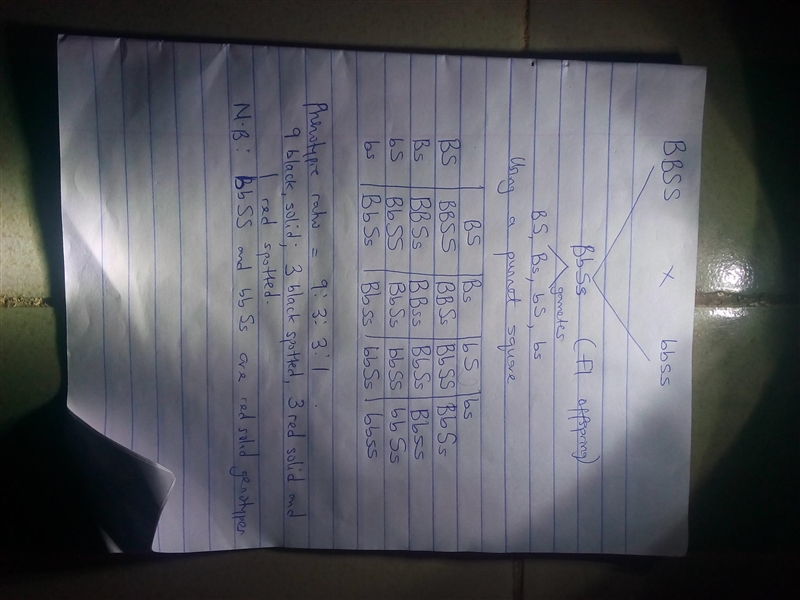 BBSS × bbss
BbSs (F1 offspring)
gametes
BS, Bs, bS, bs
Using a punnet square
BS Bs bS bs
BS BBSS BBSs BbSS BbSs
Bs BBSs BBss BbSs Bbss
bS BbSS BbSs bbSS bbSs
bs BbSs Bbss bbSs bbss
Phenotypic ratio = 9:3:3:1
9 black, solid; 3 black spotted, 3 red solid and
1 red spotted.
N.B: bbSS and bbSs are red solid genotypes